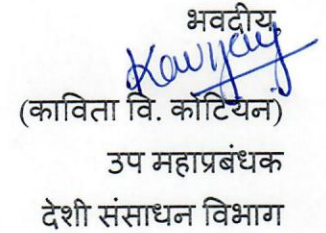 भवदीय,
(काविता वि. कोटियन)
उप महाप्रबंधक
देशी संसाधन विभाग